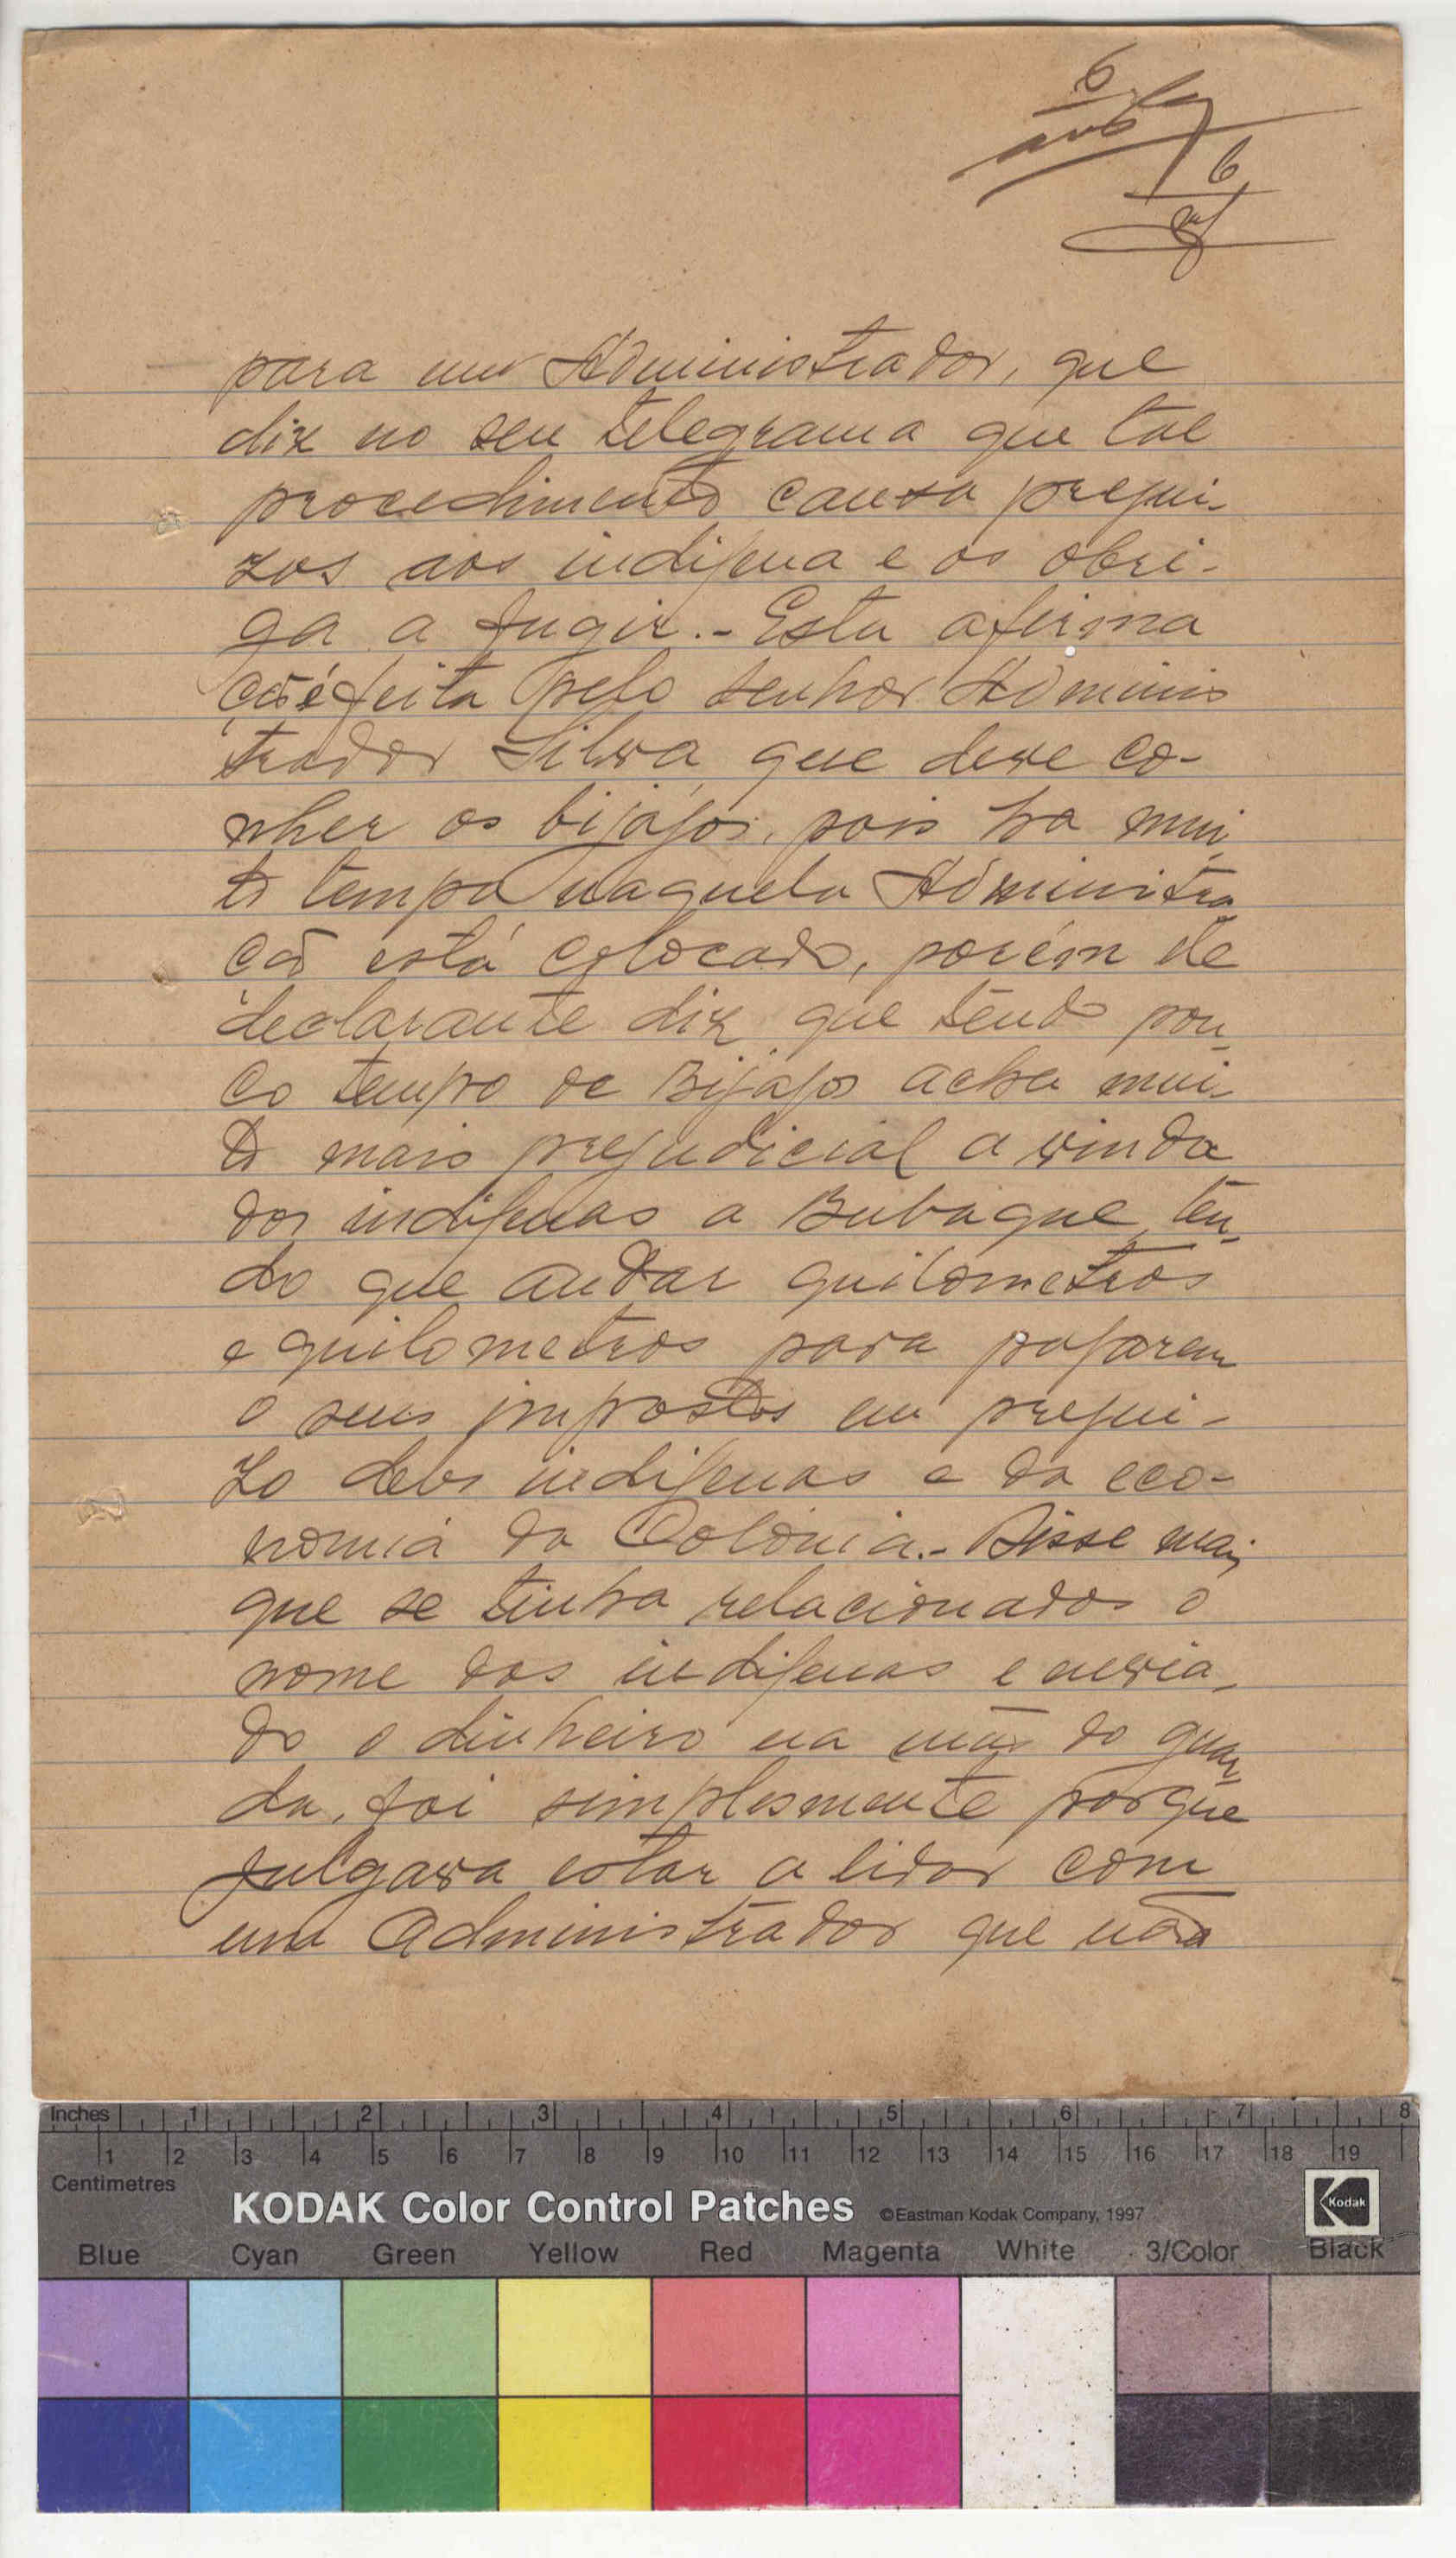 6
6
para um Administrador, que
diz no seu telegrama que tal
procedimento causa prejui-
zos aos indigena e os obri-
ga a fugir.- Esta afirma
ção é feita pelo senhor Adminis
trador Silva, que deve co-
nher os bijagos, pois ha mui
to tempo naquela Adminitra
ção está colocado, porém ele
declarante diz que tendo pou
co tempo de Bijagos acha mui-
to mais prejudicial a vinda
dos indigenas a Bubaque, ten
do que andar quilometros
e quilometros para pagarem
o seus impostos em prejui-
zo deles indigenas e da eco-
nomia da Colónia.- Disse mais
que se tinha relacionados o
nome dos indigenas e envia
do o dinheiro na mão do guar
da, foi simplesmente porque
julgava estar a lidar com
um Administrador que não
Inches 1 2 3 4 5 6 7 8
1 2 3 4 5 6 7 8 9 10 11 12 13 14 15 16 17 18 19
Centimetres
KODAK Color Control Patches ©Eastman Kodak Company, 1997 Kodak
Blue Cyan Green Yellow Red Magenta White 3/Color Black